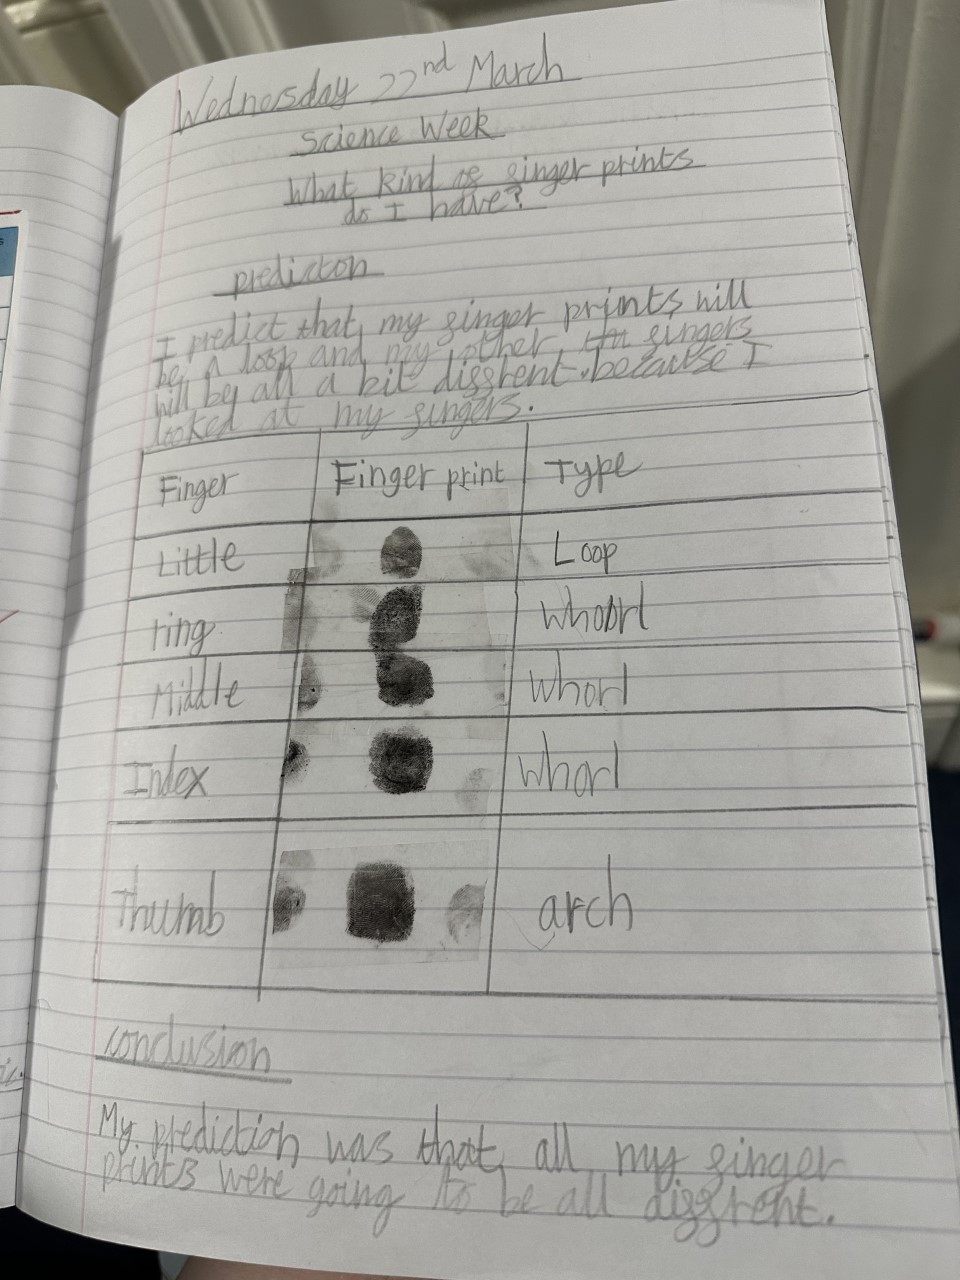 Wednesday 22nd March
Science Week
What kind of finger prints
do I have?
predicton
I predict that my finger prints will
be a loop and my other fingers
will be all a bit diffrent. because I
looked at my fingers.
Finger Finger print Type
Little Loop
ring whoorl
Middle Whorl
Index whorl
Thumb arch
conclusion
My prediction was that all my finger
prints were going to be all diffrent.